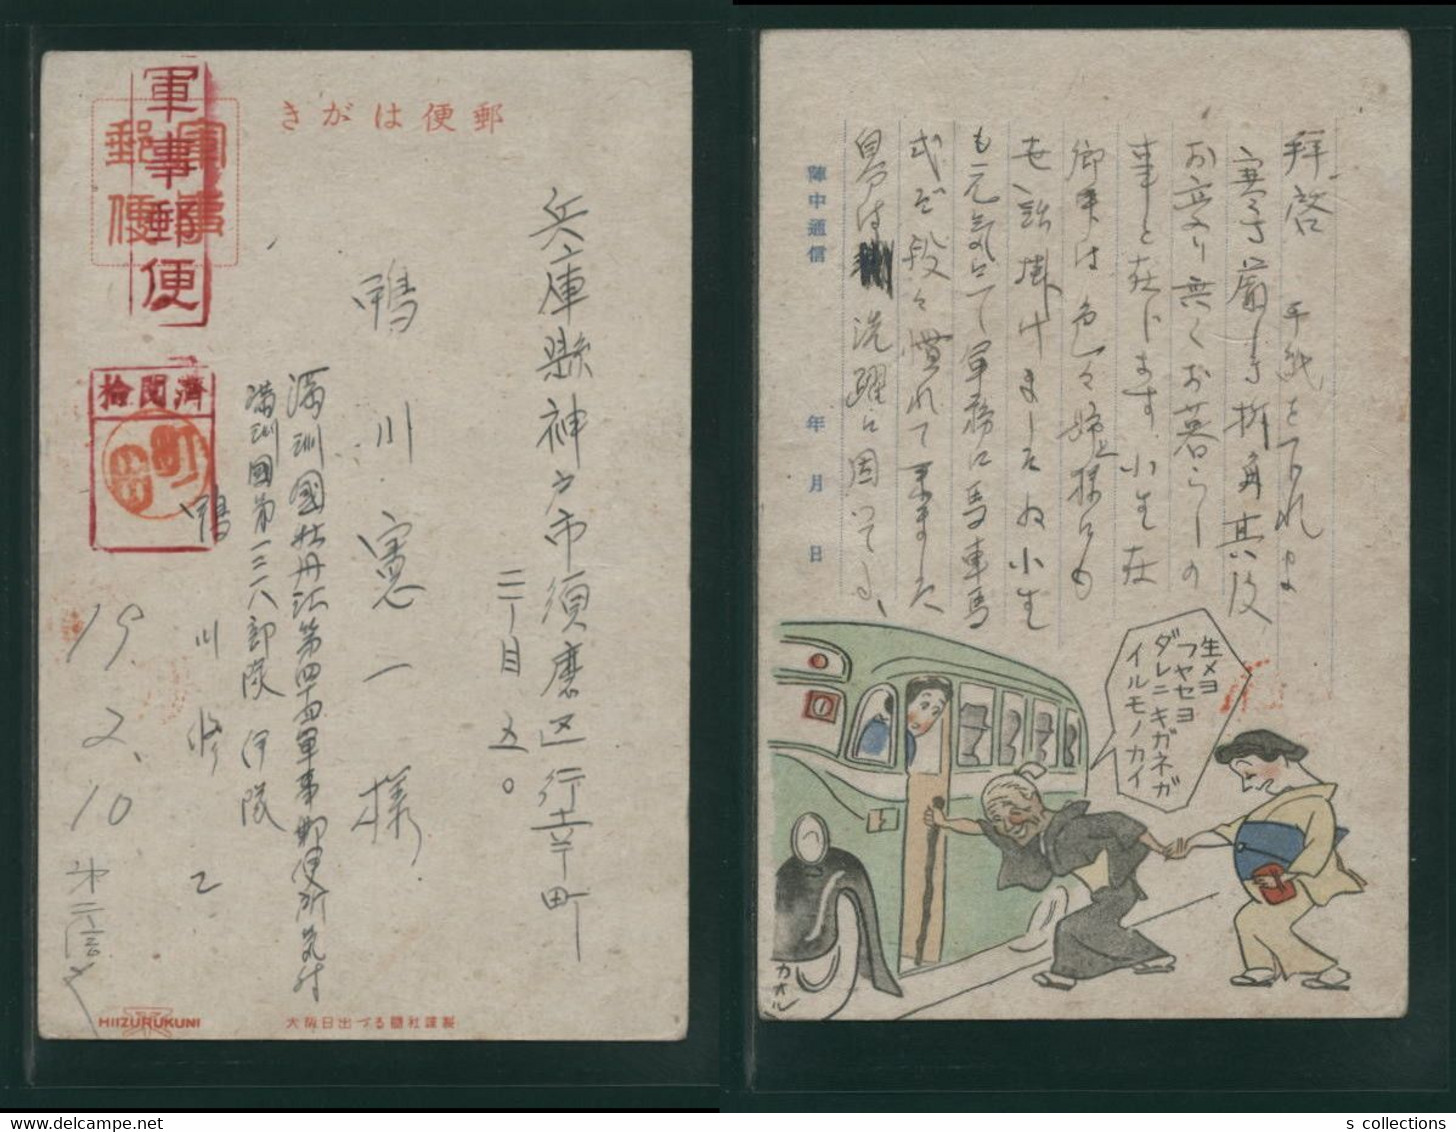 郵便はがき
軍事郵便
軍事郵便
検閲済
兵庫縣神戸市須磨区行幸町
二丁目五〇
鴨川憲一様
満洲國牡丹江第四十四軍事郵便所気付
満洲國第一三八部隊伊隊
鴨川
19.2.10
HIIZURUKUNI
大阪日出づる國社謹製
拝啓 手紙を下れま
寒さ厳しき折角其後
お変り無くお暮らしの
事と在じます 小生在
郷中は色々姉上様にも
世話掛けましたね 小生
も元気にて軍務に馬車馬
式だ段々慣れて来ました
洗躍に困つて
陣中通信
年 月 日
生メヨ
フヤセヨ
ダレニキガネガ
イルモノカイ
カオル
s collections